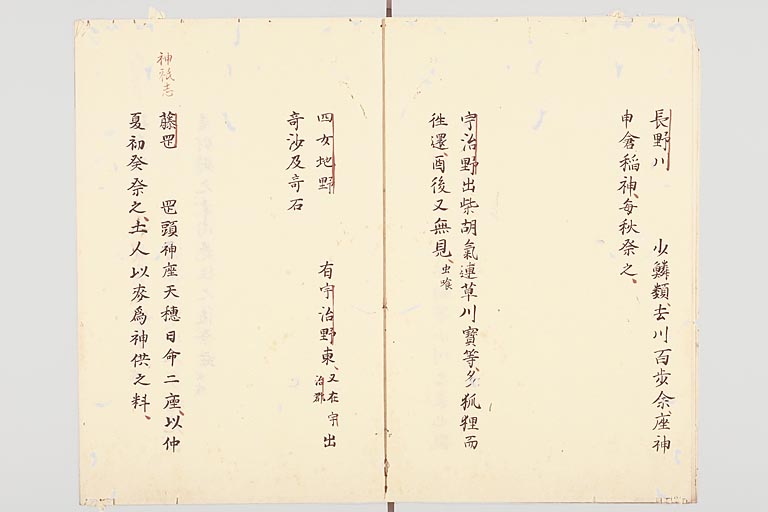 長野川　少鱗類、去川百歩余、座神
申倉稲神、每秋祭之、
宇治野出柴胡氣連草川寳等、多狐狸而
徃還、酉後又無見、虫喰
四女地野　有宇治野東、又在宇治郡出
奇沙及奇石
神祇志
藤罡　罡頭神座天穗日命二座、以仲
夏初癸祭之、土人以麥爲神供之料、